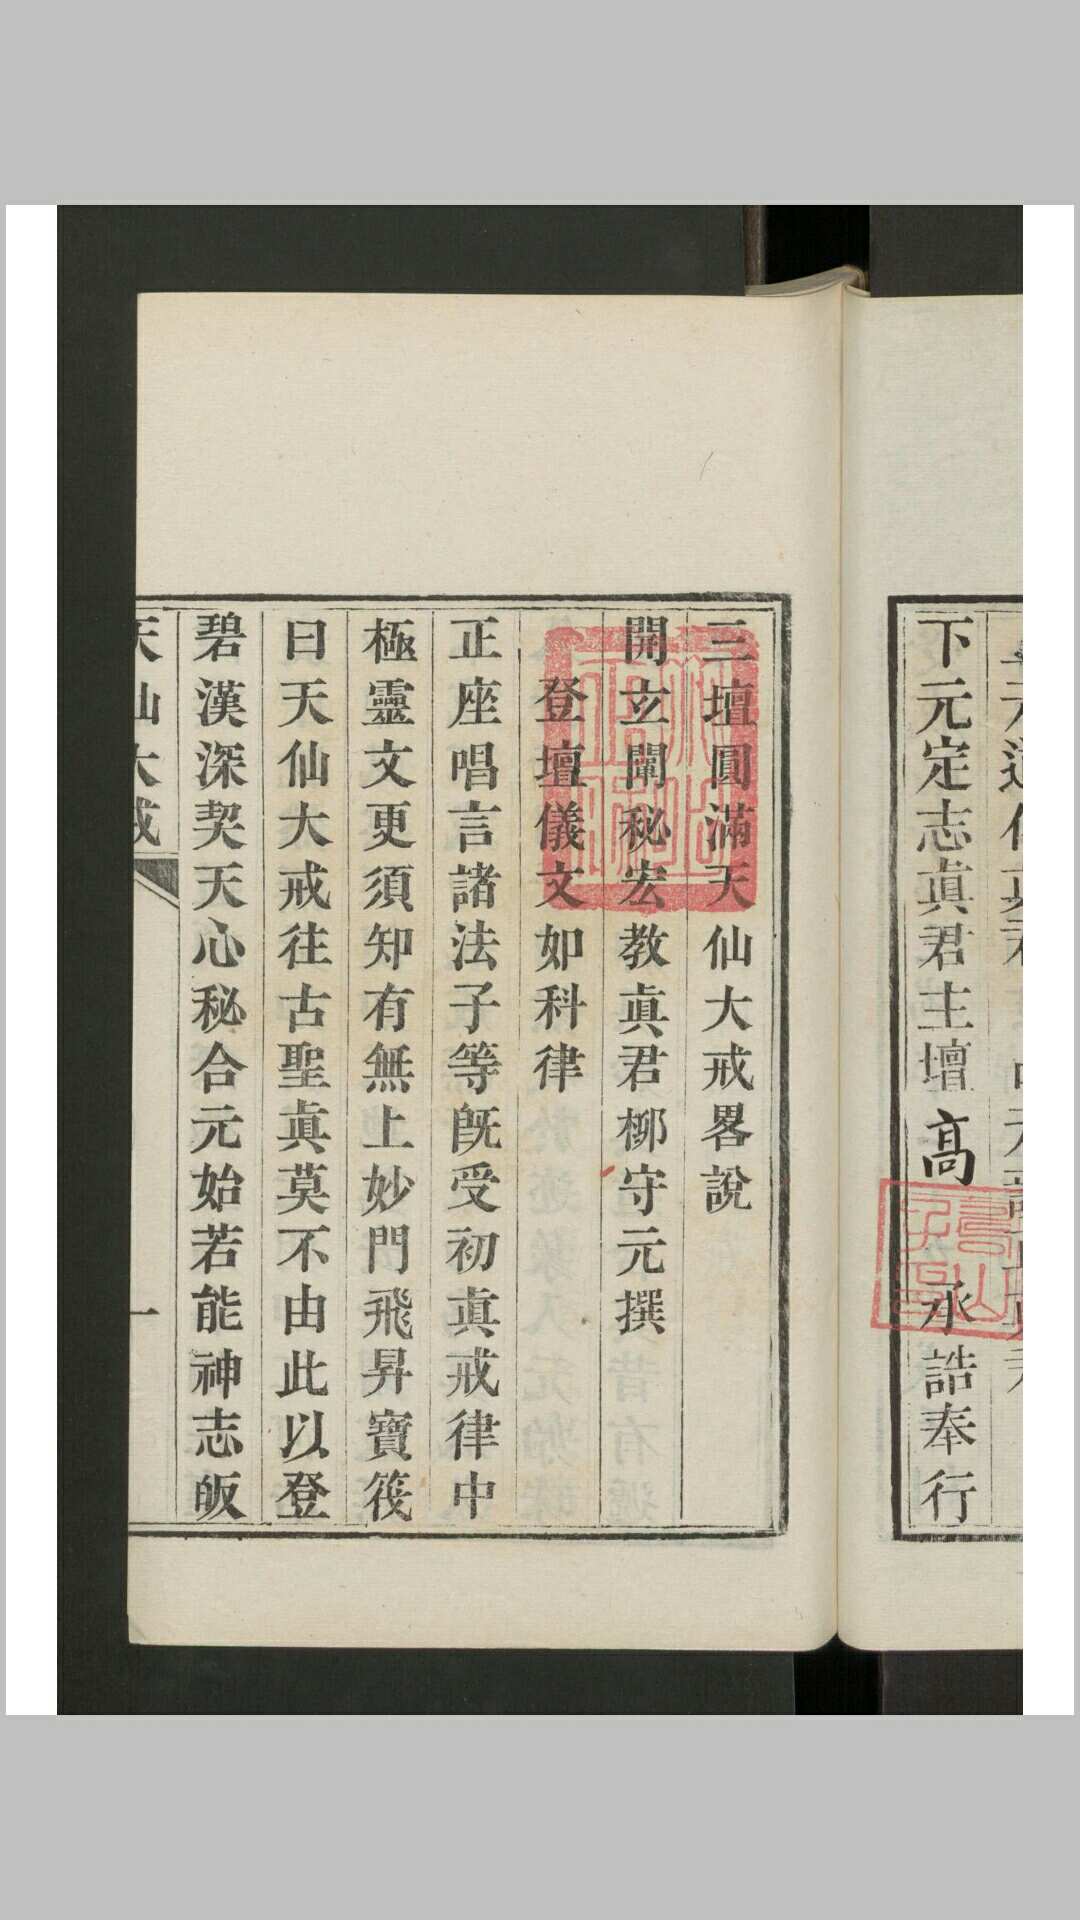 下元定志眞君主壇高　承誥奉行
三壇圓滿天仙大戒畧說
開玄闡秘宏教眞君柳守元撰
登壇儀文如科律
正座唱言諸法子等旣受初眞戒律中
極靈文更須知有無上妙門飛昇寶筏
曰天仙大戒往古聖眞莫不由此以登
碧漢深契天心秘合元始若能神志皈
天仙大戒
一